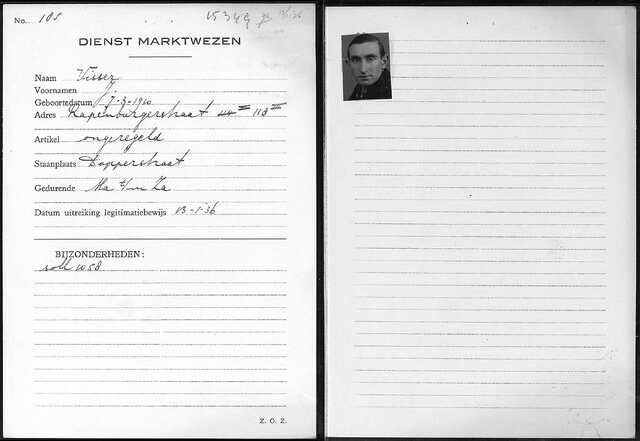 No. 105
DIENST MARKTWEZEN
Naam Visser
Voornamen J.
Geboortedatum 7-3-1910
Adres Rapenburgerstraat 44 II 118 II
Artikel ongeregeld
Staanplaats Dapperstraat
Gedurende Ma t/m Za
Datum uitreiking legitimatiebewijs 13-1-36
BIJZONDERHEDEN:
Z. O. Z.